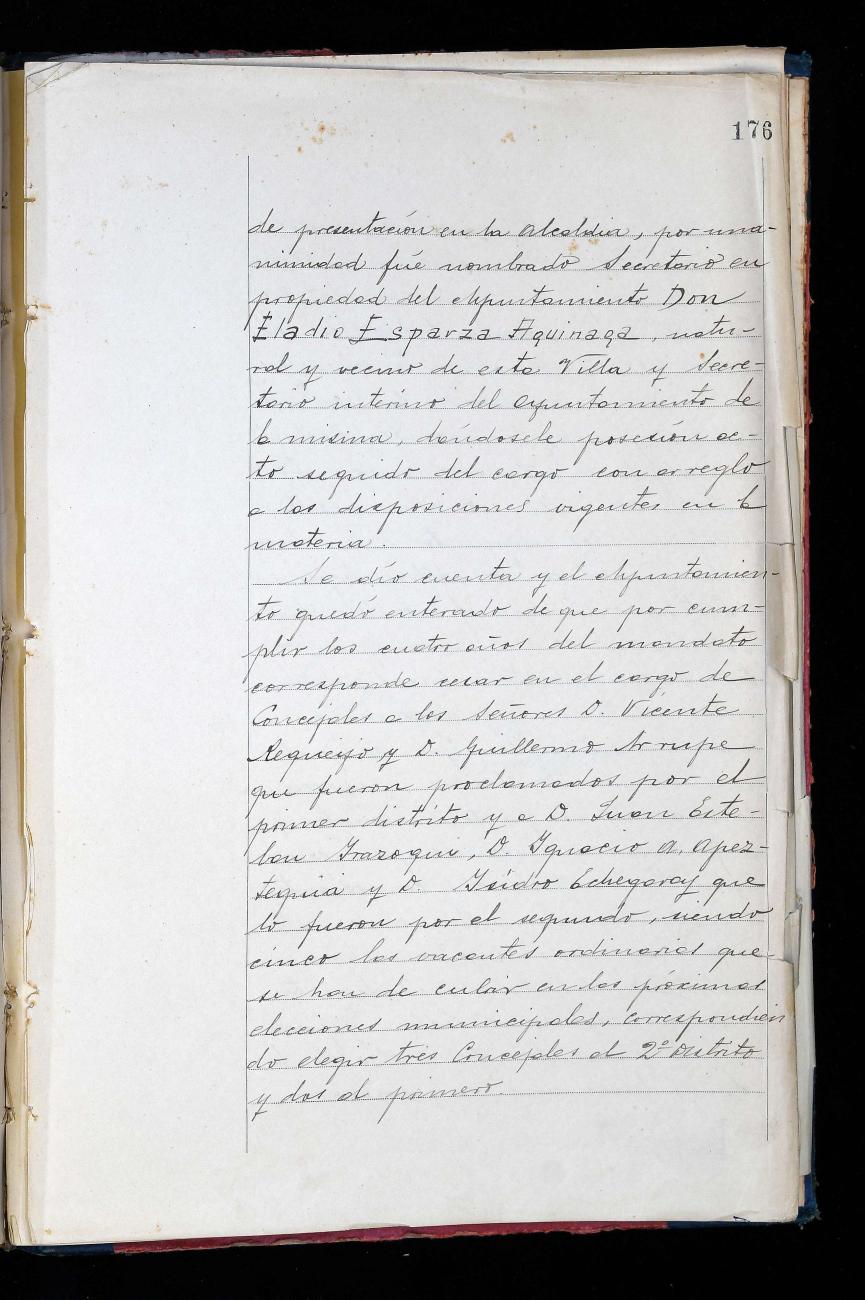 176
de presentación en la Alcaldia, por una-
nimidad fué nombrado Secretario en
propiedad del Ayuntamiento Don
Eladio Esparza Aguinaga, natu-
ral y vecino de esta Villa y Secre-
tario interino del Ayuntamiento de
la misma, dándosele posesión ac-
to seguido del cargo con arreglo
a las disposiciones vigentes en la
materia.
Se dío cuenta y el Ayuntamien-
to quedó enterado de que por cum-
plir los cuatro años del mandato
corresponde cesar en el cargo de
Concejales a los Señores D. Vicente
Requeijo y D. Guillermo Arrupe
que fueron proclamados por el
primer distrito y a D. Juan Este-
ban Irazoqui, D. Ignacio A. Apez-
teguia y D. Isídro Echegaray que
lo fueron por el segundo, siendo
cinco las vacantes ordinarias que
se han de cubrir en las próximas
elecciones municipales, correspondien
do elegir tres Concejales al 2º Distrito
y dos al primero.